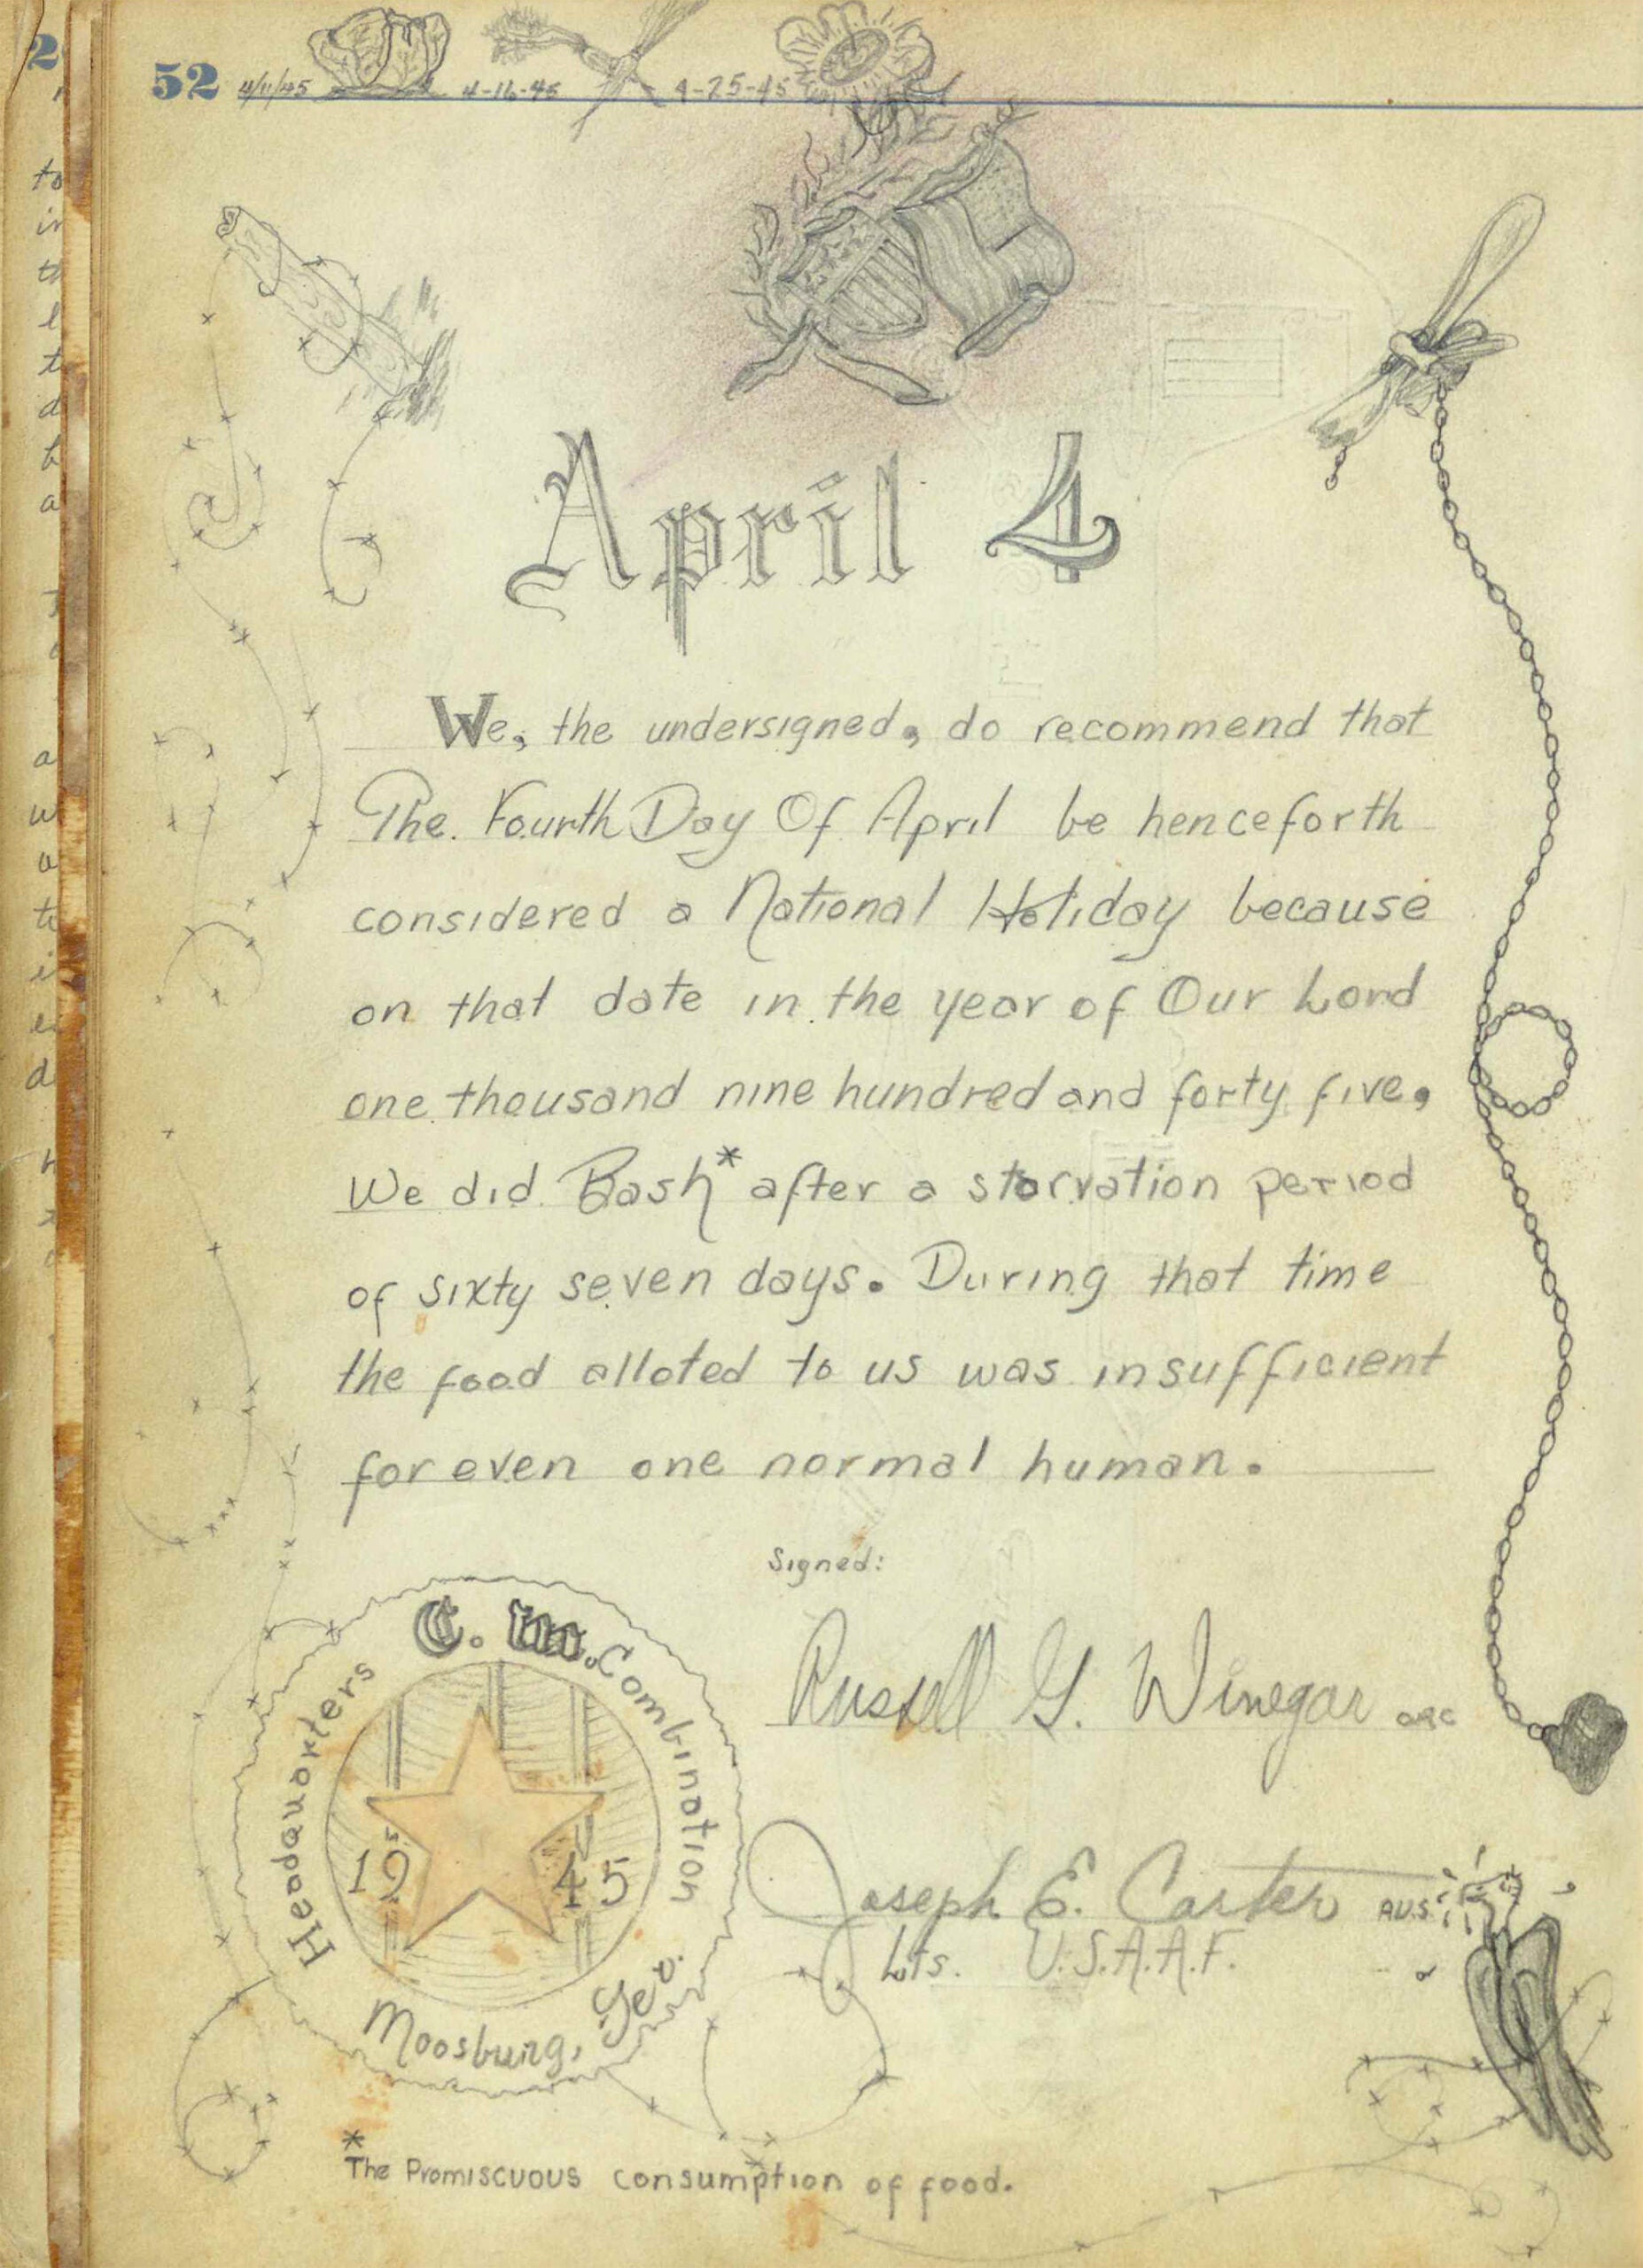 52 4/11/45 4-16-45 4-25-45
April 4
We, the undersigned, do recommend that
The Fourth Day Of April be henceforth
considered a National Holiday because
on that date in the year of Our Lord
one thousand nine hundred and forty five,
We did Bash* after a starvation period
of sixty seven days. During that time
the food alloted to us was insufficient
for even one normal human.
Signed:
Russell G. Winegar
Joseph E. Carter A.U.S.
Lts. U.S.A.A.F.
Headquarters C. M. Combination
19 45
Moosburg, Ger.
* The Promiscuous consumption of food.